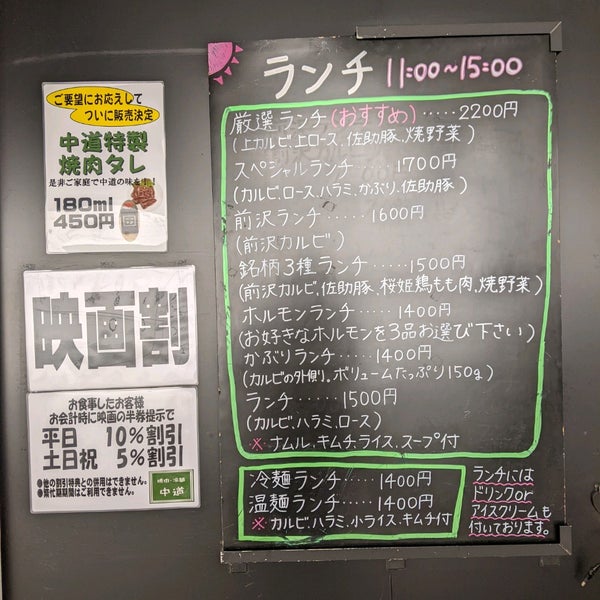 ご要望にお応えして
ついに販売決定
中道特製
焼肉タレ
是非ご家庭で中道の味を
180ml
450円
映画割
お食事したお客様
お会計時に映画の半券提示で
平日 10%割引
土日祝 5%割引
●他の割引特典との併用はできません。
●繁代期期間はご利用できません。
焼肉・冷麺
中道
ランチ 11:00~15:00
厳選ランチ(おすすめ)‥‥‥2200円
(上カルビ、上ロース、佐助豚、焼野菜)
スペシャルランチ‥‥‥1700円
(カルビ、ロース、ハラミ、かぶり、佐助豚)
前沢ランチ‥‥‥1600円
(前沢カルビ)
銘柄3種ランチ‥‥‥1500円
(前沢カルビ、佐助豚、桜姫鶏もも肉、焼野菜)
ホルモンランチ‥‥1400円
(お好きなホルモンを3品お選び下さい)
かぶりランチ‥‥1400円
(カルビの外側り。ボリュームたっぷり150g)
ランチ‥‥‥1500円
(カルビ、ハラミ、ロース)
※ナムル、キムチ、ライス、スープ付
冷麺ランチ‥‥1400円
温麺ランチ‥‥1400円
※カルビ、ハラミ、小ライス、キムチ付
ランチには
ドリンクor
アイスクリームも
付いております。